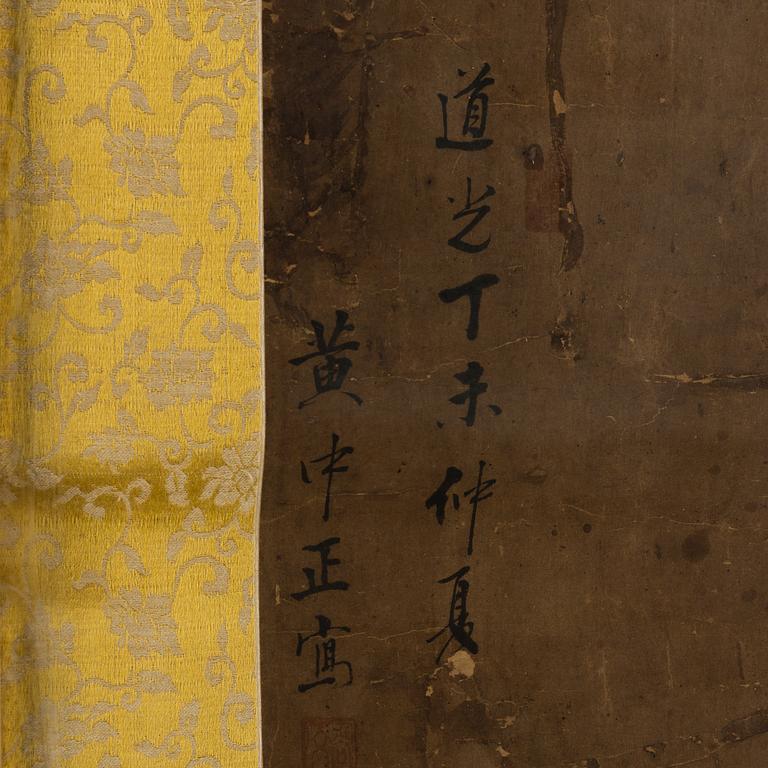 道光丁未仲夏
黄中正寫